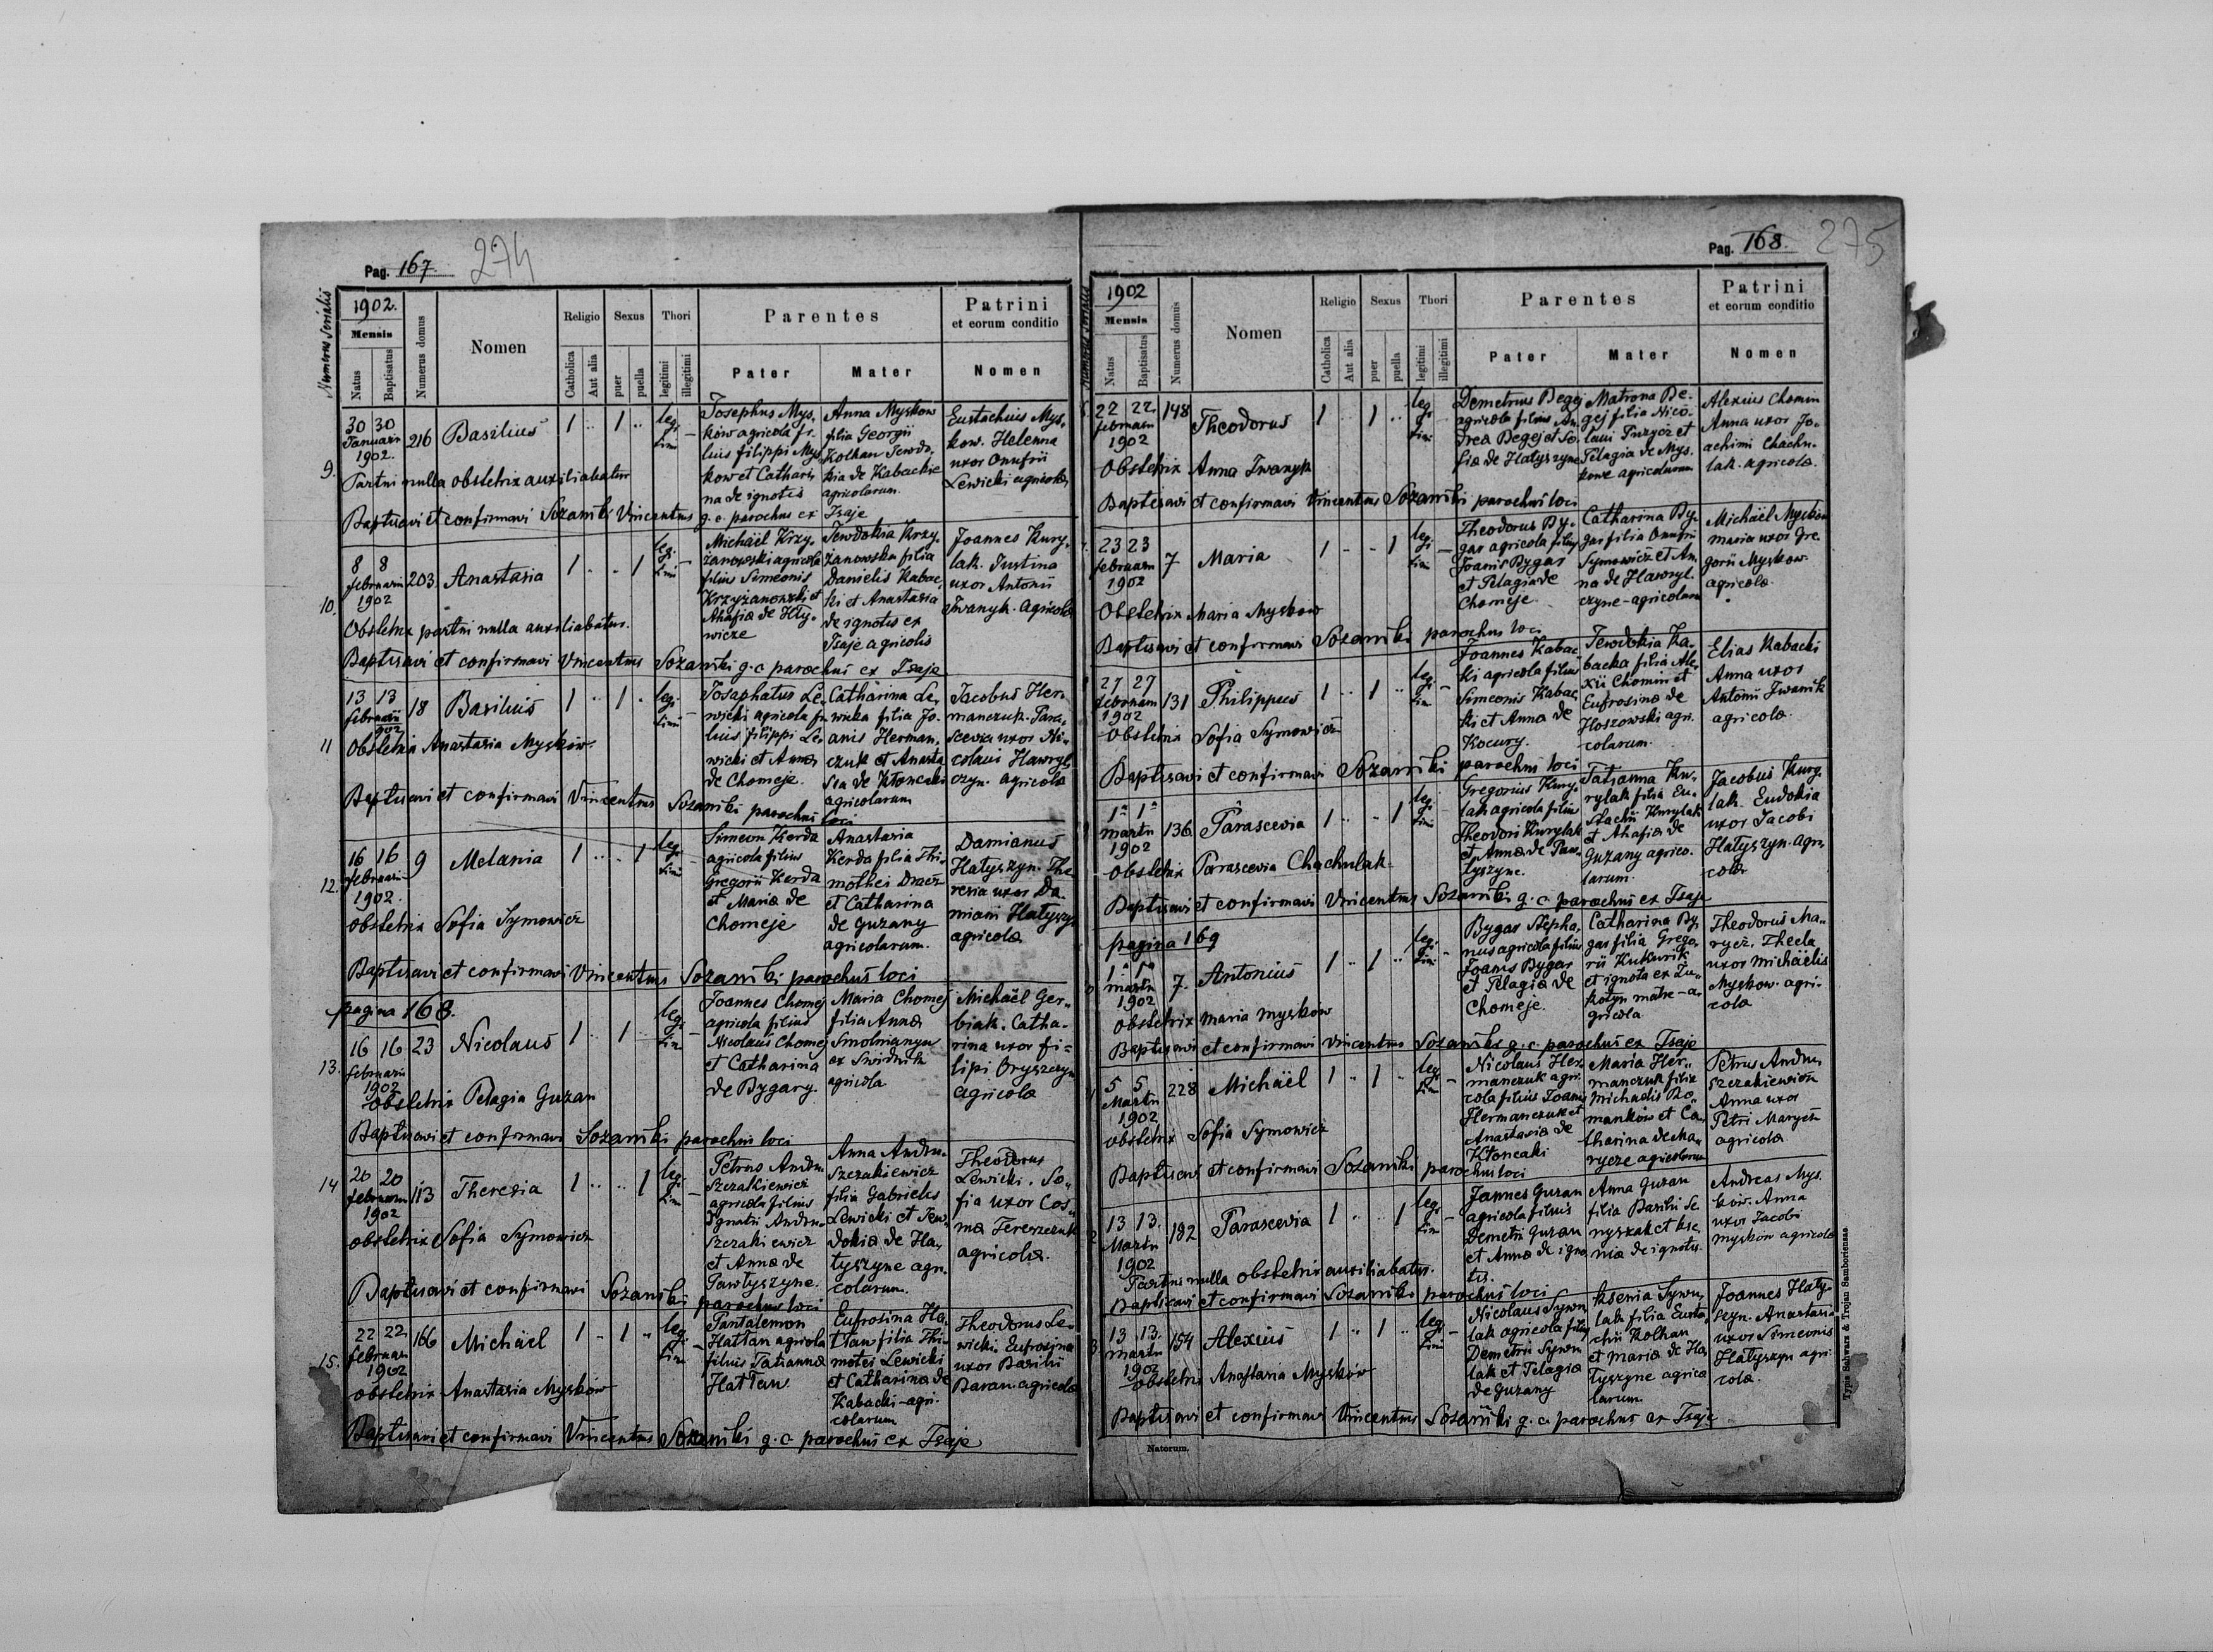 Pag. 167. 274
Numerus serialis
1902.
Mensis
Natus
Baptisatus
Numerus domus
Nomen
Religio
Catholica
Aut alia
Sexus
puer
puella
Thori
legitimi
illegitimi
Parentes
Pater
Mater
Patrini
et eorum conditio
Nomen
9.
30 30
Januarii
1902.
216 Basilius 1 .. 1 .. legi- timi –
Josephus Mys-
ków agricola fi-
lius filippi Mys
kow et Cathari
na de ignotis
Anna Myskow
filia Georgii
Kolhan Jewdo-
kia de Kabackie
agricolarum.
Eustachius Mys-
kow. Helenna
uxor Onufrii
Lewicki agricola
Partui nulla obstetrix auxiliabatur
Baptisavi et confirmavi Sozański Vincentus g. c. parochus ex Isaje
10.
8 8
februarii
1902
203. Anastasia 1 .. .. 1 legi- timi –
Michäel Krzy-
żanowski agricola
filius Simeonis
Krzyżanowski et
Ahafia de Hły-
wicze
Jewdokia Krzy-
żanowska filia
Danielis Kabac-
ki et Anastasia
de ignotis ex
Isaje agricolis
Joannes Kury-
lak. Justina
uxor Antonii
Iwanyk. Agricola
Obstetrix partui nulla auxiliabatur.
Baptisavi et confirmavi Vincentus Sozański g. c. parochus ex Isaje
11
13 13
februarii
1902
18 Basilius 1 .. 1 . legi- timi –
Josaphatus Le-
wicki agricola fi-
lius filippi Le-
wicki et Anna
de Chomeje
Catharina Le-
wicka filia Jo-
anis Herman-
czuk et Anasta
sia de Kłoncaki
agricolarum
Jacobus Her-
manczuk. Para-
scevia uxor Ni-
colaui Hawryl-
czyn. agricola
Obstetrix Anastasia Mysków.
Baptisavi et confirmavi Vincentus Sozański parochus loci
12.
16 16
februarii
1902.
9 Melania 1 .. .. 1 legi- timi –
Simeon Kerda
agricola filius
Gregorii Kerda
et Maria de
Chomeje
Anastasia
Kerda filia Thi-
mothei Dracz
et Catharina
de Guzany
agricolarum.
Damianus
Hatyszyn. The
resia uxor Da-
miani Hatyszyn
agricola
obstetrix Sofia Symowicz
Baptisavi et confirmavi Vincentus Sozański parochus loci
pagina 168.
13.
16 16
februarii
1902
23 Nicolaus 1 .. 1 .. legi- timi –
Joannes Chomej
agricola filius
Nicolaus Chomej
et Catharina
de Bygary.
Maria Chomej
filia Anna
Smolnianyn
ex Swidnik
agricola
Michäel Ger-
biak. Catha-
rina uxor fi-
lipi Oryszczyn
agricola
obstetrix Pelagia Guzan
Baptisavi et confirmavi Sozański parochus loci
14
20 20
februarii
1902
113 Theresia 1 .. .. 1 legi- timi –
Petrus Andru-
szczakiewicz
agricola filius
Ignatii Andru-
szczakiewicz
et Anna de
Pawtyszyne.
Anna Andru-
szczakiewicz
filia Gabrielis
Lewicki et Jew-
dokia de Ha-
tyszyne agri-
colarum.
Theodorus
Lewicki. So-
fia uxor Cos-
ma Tereszczuk
agricola.
obstetrix Sofia Symowicz
Baptisavi et confirmavi Sozański parochus loci
15.
22 22
februarii
1902
166 Michäel 1 .. 1 .. legi- timi –
Pantalemon
Hattan agricola
filius Tatianna
Hattan
Eufrosina Ha-
ttan filia Thi-
motei Lewicki
et Catharina de
Kabacki-agri-
colarum
Theodorus Le-
wicki. Eufrosina
uxor Basilii
Baran. agricola
obstetrix Anastasia Mysków
Baptisavi et confirmavi Vincentus Sozański g. c. parochus ex Isaje
Pag. 168. 275
1902
Mensis
Natus
Baptisatus
Numerus domus
Nomen
Religio
Catholica
Aut alia
Sexus
puer
puella
Thori
legitimi
illegitimi
Parentes
Pater
Mater
Patrini
et eorum conditio
Nomen
22 22.
februarii
1902
148 Theodorus 1 .. 1 .. legi- timi –
Demetrius Begej
agricola filius An-
drea Begej et So-
fia de Hatyszyne
Matrona Be-
gej filia Nico-
laui Puzycz et
Pelagia de Mys-
kowe agricolarum
Alexius Chomin
Anna uxor Jo-
achimi Chachu-
lak. agricola.
Obstetrix Anna Iwanyk
Baptisavi et confirmavi Vincentus Sozański parochus loci
23 23
februarii
1902
7 Maria 1 .. .. 1 legi- timi –
Theodorus By-
gar agricola filius
Joanis Bygar
et Pelagia de
Chomeje
Catharina By-
gar filia Onufrii
Symowicz et An-
na de Hawryl-
czyne-agricolarum
Michäel Myskow
maria uxor Gre-
gorii Myskow.
agricola.
Obstetrix Maria Myskow
Baptisavi et confirmavi Sozański parochus loci
27 27
februarii
1902
131 Philippus 1 .. 1 .. legi- timi –
Joannes Kabac-
ki agricola filius
Simeonis Kabac-
ki et Anna de
Kocury.
Jewdokia Ka-
backa filia Ale-
xii Chomin et
Eufrosina de
Hoszowski agri-
colarum.
Elias Kabacki
Anna uxor
Antonii Iwanik
agricola.
obstetrix Sofia Symowicz
Baptisavi et confirmavi Sozański parochus loci
1ª 1ª
martii
1902
136 Parascevia 1 .. .. 1 legi- timi –
Gregorius Kury-
lak agricola filius
Theodori Kurylak
et Anna de Paw-
tyszyne.
Tatianna Ku-
rylak filia Eu-
stachii Kurylak
et Ahafia de
Guzany agrico-
larum.
Jacobus Kury-
lak. Eudokia
uxor Jacobi
Hatyszyn. Agri-
cola
obstetrix Parascevia Chachulak
Baptisavi et confirmavi Vincentus Sozański g. c. parochus ex Isaje
pagina 169
1ª 1ª
martii
1902
7. Antonius 1 .. 1 .. legi- timi –
Bygar Stepha-
nus agricola filius
Joanis Bygar
et Pelagia de
Chomeje.
Catharina By-
gar filia Grego-
rii Kukurik
et ignota ex Łu-
kotyn matre-a-
gricola
Theodorus Ma-
rycz. Thecla
uxor Michäelis
Myskow. agri-
cola
obstetrix maria mysków
Baptisavi et confirmavi Vincentus Sozański g. c. parochus ex Isaje
5 5
Martii
1902
228 Michäel 1 .. 1 .. legi- timi –
Nicolaus Her-
manczuk agri-
cola filius Joanis
Hermanczuk et
Anastasia de
Kłoncaki
Maria Her-
manczuk filia
Michaelis Ro-
manków et Ca-
tharina de Ma-
rycze agricolarum
Petrus Andru-
szczakiewicz
Anna uxor
Petri Marycz
agricola
obstetrix Sofia Symowicz
Baptisavi et confirmavi Sozański parochus loci
13 13.
Martii
1902
192 Parascevia 1 .. .. 1 legi- timi –
Joannes Guzan
agricola filius
Demetrii Guzan
et Anna de igno-
tis.
Anna Guzan
filia Basilii Se-
nyszak et kse-
nia de ignotis.
Andreas Mys-
ków. Anna
uxor Jacobi
myskow agricola
Partui nulla obstetrix auxiliabatur.
Baptisavi et confirmavi Sozański parochus loci
13 13.
martii
1902
154 Alexius 1 .. 1 .. legi- timi –
Nicolaus Sywu-
lak agricola filius
Demetrii Sywu-
lak et Pelagia
de guzany
ksenia Sywu-
lak filia Eusta-
chii Kolhan
et maria de Ha-
tyszyne agrico
larum.
Joannes Haty-
szyn. Anastasia
uxor Simeonis
Hatyszyn agri-
cola.
obstetrix Anastasia Mysków
Baptisavi et confirmavi Vincentus Sozański g. c. parochus ex Isaje
Natorum.
Typis Schwarz & Trojan Samboriensae